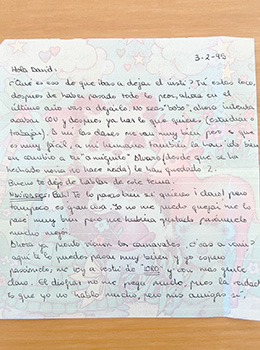 3-2-95
Hola David:
¿Qué es eso de que ibas a dejar el insti? Tú estás loco,
después de haber pasado todo lo peor, ahora en el
último año vas a dejarlo. No seas "bobo", ahora intenta
acabar COU y después ya harás lo que quieras (estudiar o
trabajar). A mi las clases me van muy bien pero es que
es muy fácil, a mi hermana también la han ido bien
en cambio a mi "amiguito" Alvaro (desde que se ha
hechado novia no hace nada) le han quedado 2.
Bueno te dejo de hablar de este tema.
Pues lo pasé bien si quieres ¡claro! pero
tampoco es gran cosa. Yo no me puedo quejar me lo
pasé muy bien pero me hubiera gustado pasármelo
mucho mejor.
Ahora ya pronto vienen los carnavales, ¿vas a venir?
aquí te lo puedes pasar muy bien y yo espero
pasármelo, me voy a vestir de "LORO" y con mas gente
claro. El disfraz no me pega mucho, pero la verdad
es que yo no hablo mucho, pero mis amigas sí,